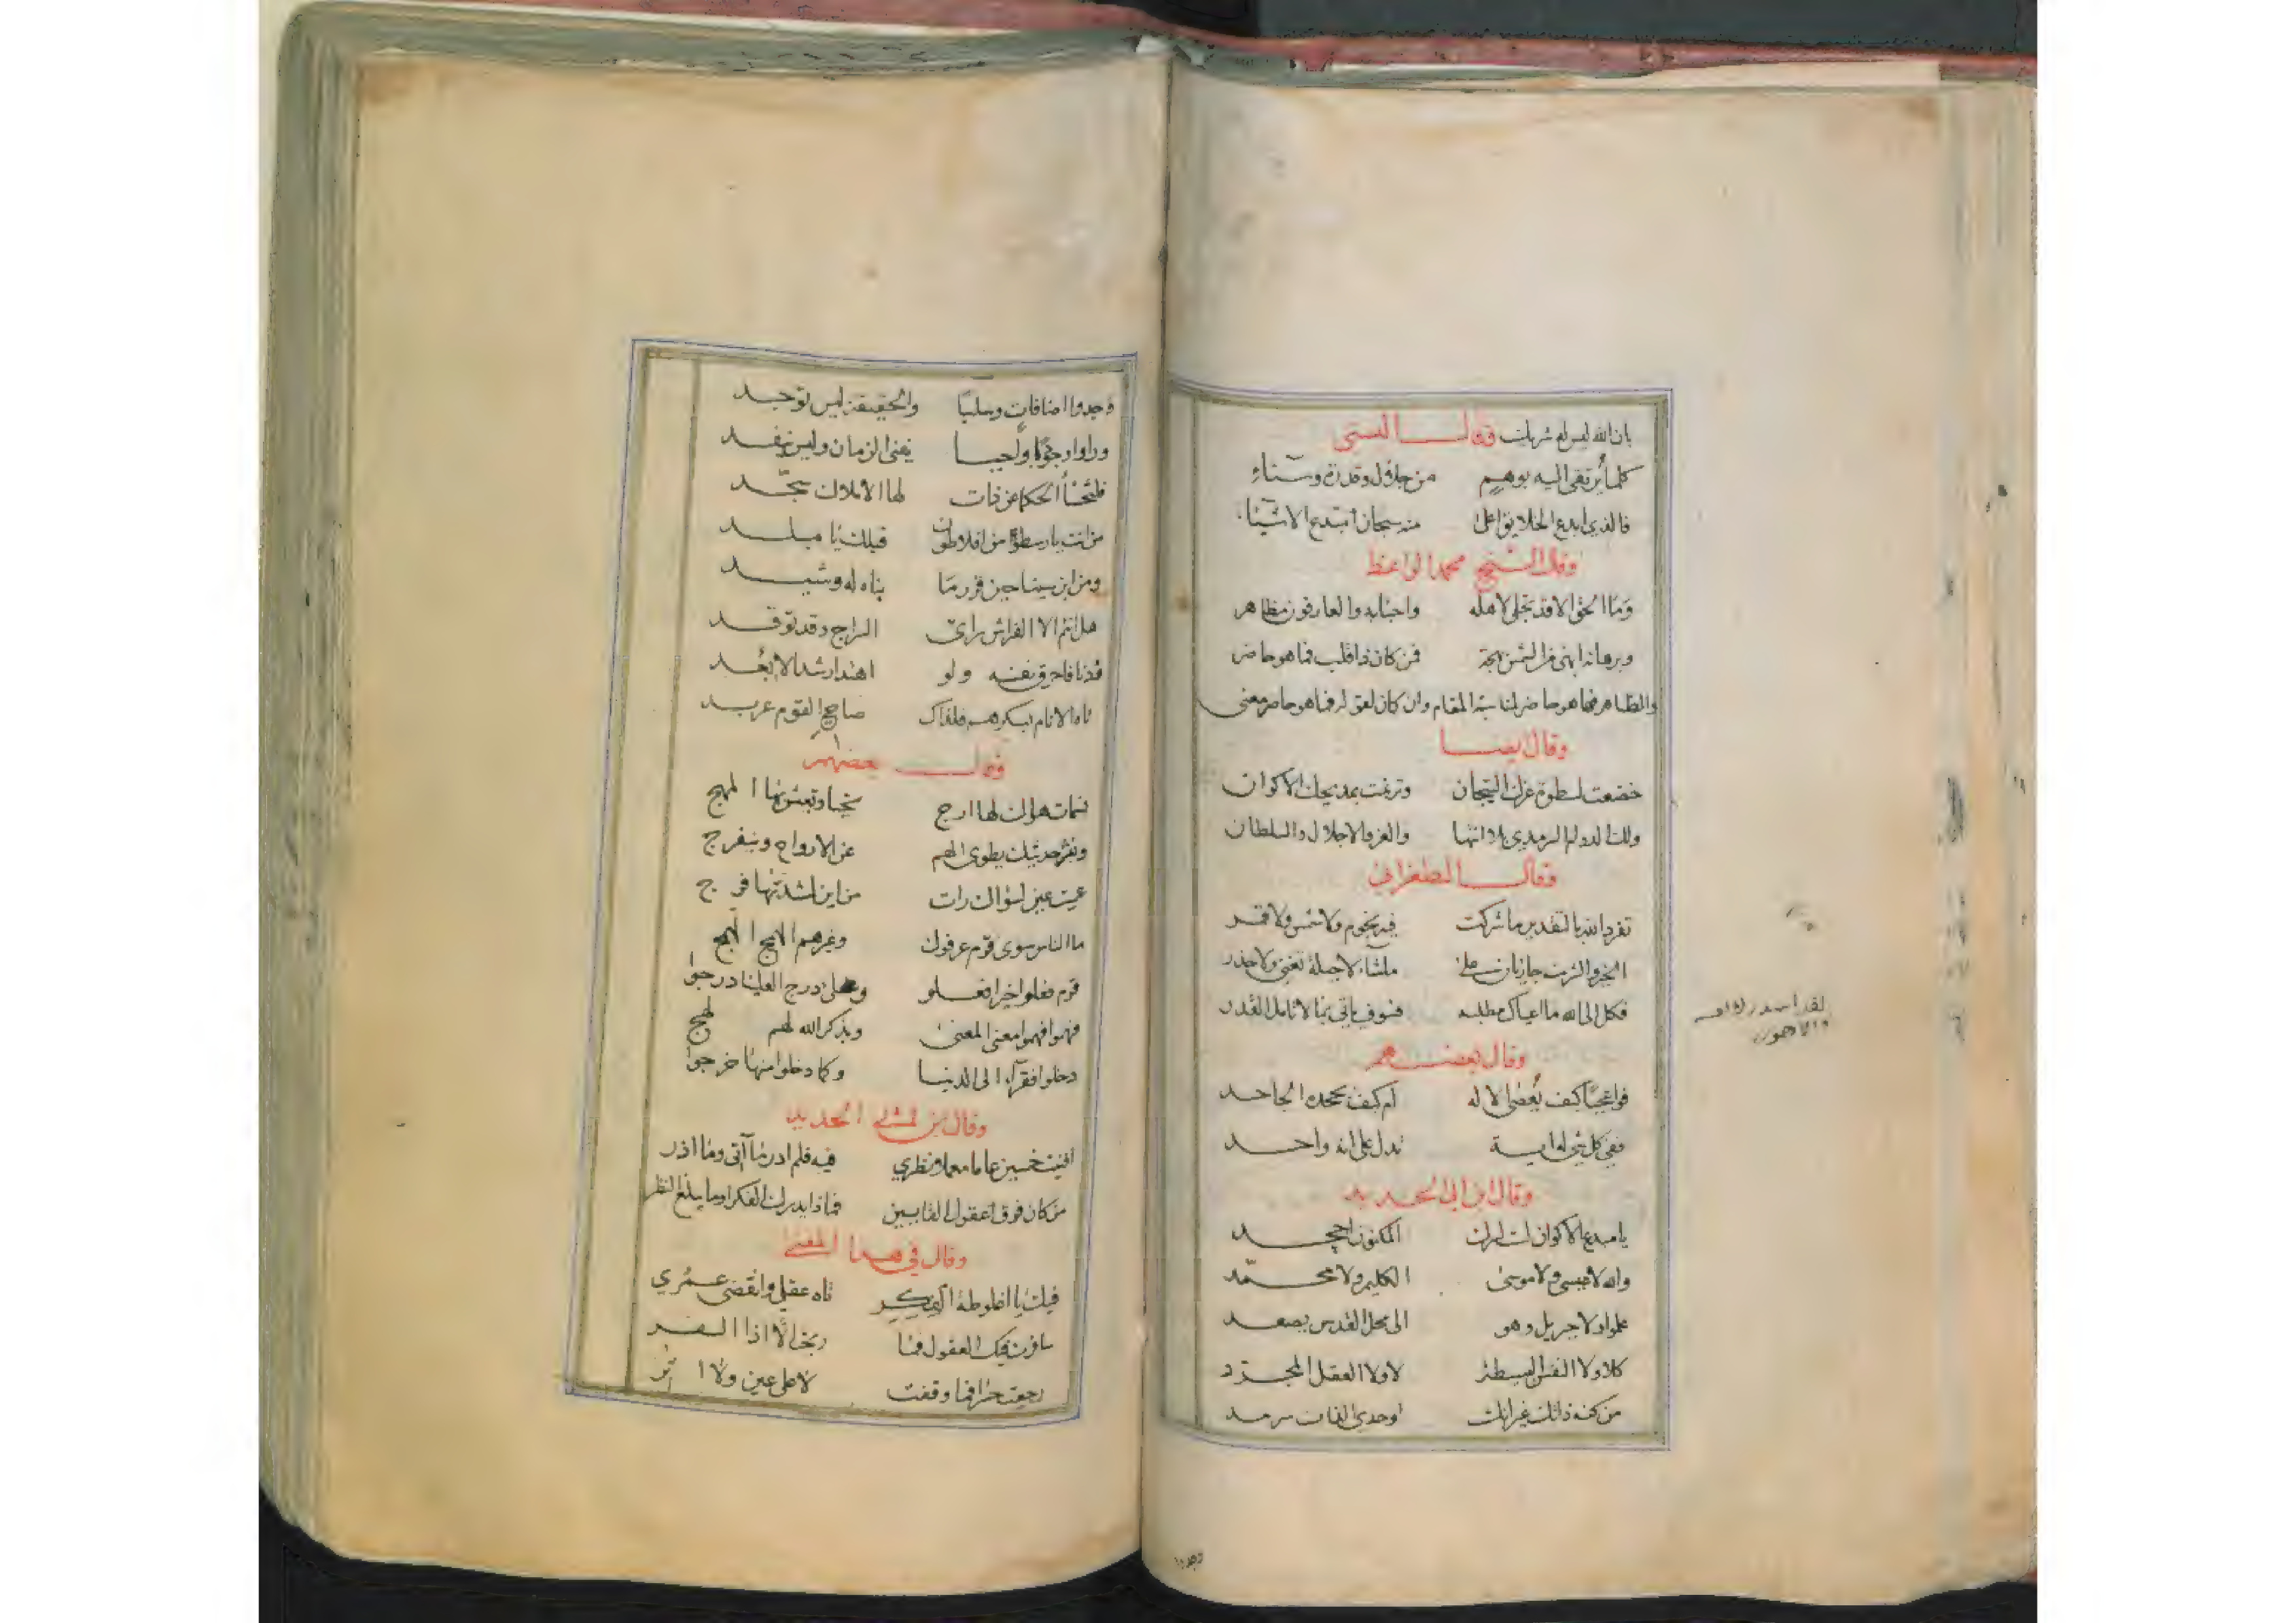 بان الله ليس له شريك قولــ البستي
كلما يرتقى اليه بوهم من جلال وقدرة وسناء
فالذي ابدع الخلايق اعلى منه سبحان مبدع الاشياء
وقال الشيخ محمد الواعظ
وما الحق الا قد تجلى لاهله واحبابه والعارفون مظاهر
وبرهانه ابهى من الشمس بهجة فمن كان ذا قلب فما هو حاضر
والظاهر فما هو حاضر لمناسبة المقام وان كان لفق له فما هو حاضر معنى
وقال ايضا
خضعت لسطوة عزك التيجان وترنمت بمديحك الاكوان
ولك الدوام السرمدي بلا انتها والعز والاجلال والسلطان
وقال الطغراني
تفرد الله بالتقدير ما شركت فيه نجوم ولا شمس ولا قمر
الخير والشر جازيان على ماشاء لا حيلة تغنى ولا حذر
فكل الى الله ما اعياك مطلبه فسوف ياتى بما لا تامل القدر
وقال بعضهم
فواعجبا كيف يعصى الاله ام كيف يجحده الجاحد
ففي كل شي له اية تدل على انه واحد
وقال ابن ابى الحديد
يا مبدع الاكوان انت المكنون
والله لا عيسى ولا موسى الكليم ولا محمد
علموا ولا جبريل وهو الى محل القدس يصعد
كلا ولا النفس البسيطة لا ولا العقل المجرد
من كنه ذاتك غير انك اوحدي الذات سرمد
وجدوا اضافات وسلبا والحقيقة ليس توجد
وراوا وجودا واجبا يفنى الزمان وليس ينفد
فلتخسأ الحكما عن ذات لها الاملاك سجد
من انت يا رسطو ومن افلاطون قبلك يا مبلد
ومن ابن سينا حين قرر ما بناه له وشيد
هل انتم الا الفراش راى السراج وقد توقد
فدنا فاحرق نفسه ولو اهتدا رشدا لابعد
تاه الانام بسكرهم فلذاك صاحي القوم عربد
قولــ بعضهم
نسمات هواك لها ارج تحيا وتعيش بها المهج
ونشر حديثك يطوى الهم عن الارواح وينفرج
من اين لشدتها فرج
ما الناس سوى قوم عرفوك وغيرهم الهمج الهمج
قوم فعلوا خيرا فعلو وعلى درج العليا درجوا
فهموا فهموا معنى المعنى وبذكر الله لهم لهج
دخلوا فقرآء الى الدنيا وكما دخلوا منها خرجوا
وقال ابن ابى الحديد
افنيت خمسين عاما معملا نظري فيه فلم ادر ما آتى وما اذر
من كان فوق عقول القايسين فماذا يدرك الفكر او ما يبلغ النظر
وقال في هذا المعنى
فيك يا اغلوطة الفكر تاه عقلي وانقضى عمري
سافرت فيك العقول فما ربحت الا اذا السفر
رجعت حسرا فما وقفت لا على عين ولا اثر